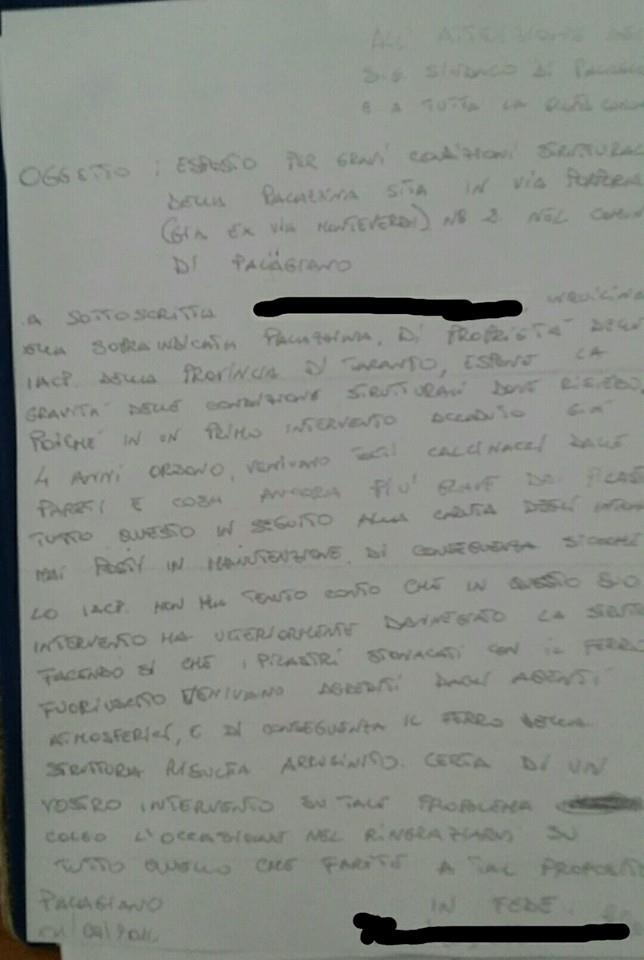 ALL' ATTENZIONE DEL
SIG. SINDACO DI PALAGI
E A TUTTA LA
OGGETTO: ESPOSTO PER GRAVI CONDIZIONI STRUTTURAL
DELLA PALAZZINA SITA IN VIA
(GIA EX VIA MONTEVERDI) N° 2 NEL COMUN
DI PALAGIANO
A SOTTOSCRITTA INQUILINA
DELLA SOPRAINDICATA PALAZZINA, DI PROPRIETA' DELLO
IACP DELLA PROVINCIA DI TARANTO, ESPONE LA
GRAVITA' DELLE CONDIZIONE STRUTTURALI DOVE RISIEDO,
POICHÉ IN UN PRIMO INTERVENTO ACCADUTO GIÀ
4 ANNI ORSONO, VENIVANO TOLTI CALCINACCI DALLE
PARETI E COSA ANCORA PIU' GRAVE DAI PILAS
TUTTO QUESTO IN SEGUITO ALLA CADUTA DEGLI
MAI POSTI IN MANUTENZIONE. DI CONSEGUENZA SICCOME
LO IACP. NON HA TENUTO CONTO CHE IN QUESTO SUO
INTERVENTO HA ULTERIORMENTE DANNEGIATO LA STRUT
FACENDO SI CHE I PILASTRI STONACATI CON IL FERRO
FUORIUSCITO VENIVANO AGREDITI DAGLI AGENTI
ATMOSFERICI, E DI CONSEGUENZA IL FERRO DELLA
STRUTTURA RISULTA ARRUGINITO. CERTA DI UN
VOSTRO INTERVENTO SU TALE PROBLEMA
COLGO L'OCCASIONE NEL RINGRAZIARVI SU
TUTTO QUELLO CHE FARETE A TAL PROPOSITO
PALAGIANO IN FEDE